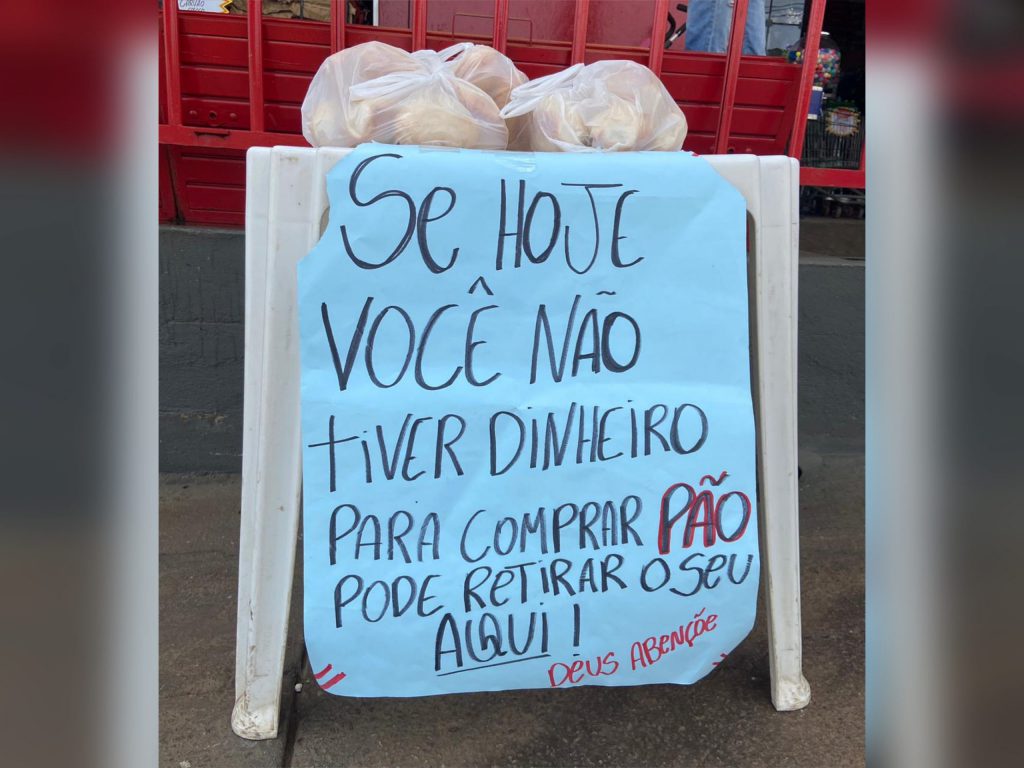 Se HOJE
VOCÊ NÃO
TIVER DINHEIRO
PARA COMPRAR PÃO
PODE RETIRAR O SEU
AQUI!
DEUS ABENÇÕE